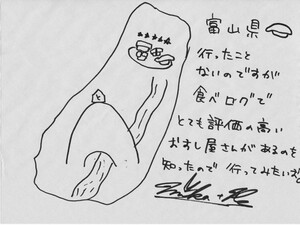 富山県
行ったこと
ないのですが
食べログで
とても評価の高い
おすし屋さんがあるのを
知ったので 行ってみたいな